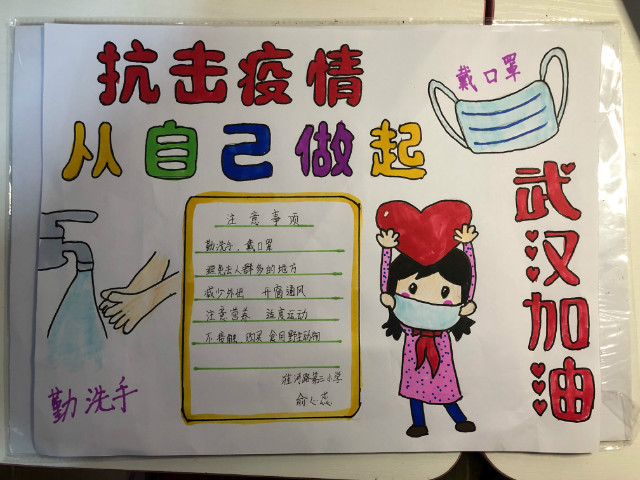 抗击疫情
从自己做起
戴口罩
武汉加油
注意事项
勤洗手、戴口罩
避免去人群多的地方
减少外出 开窗通风
注意营养 适度运动
不接触、购买、食用野生动物
路第二小学
勤洗手